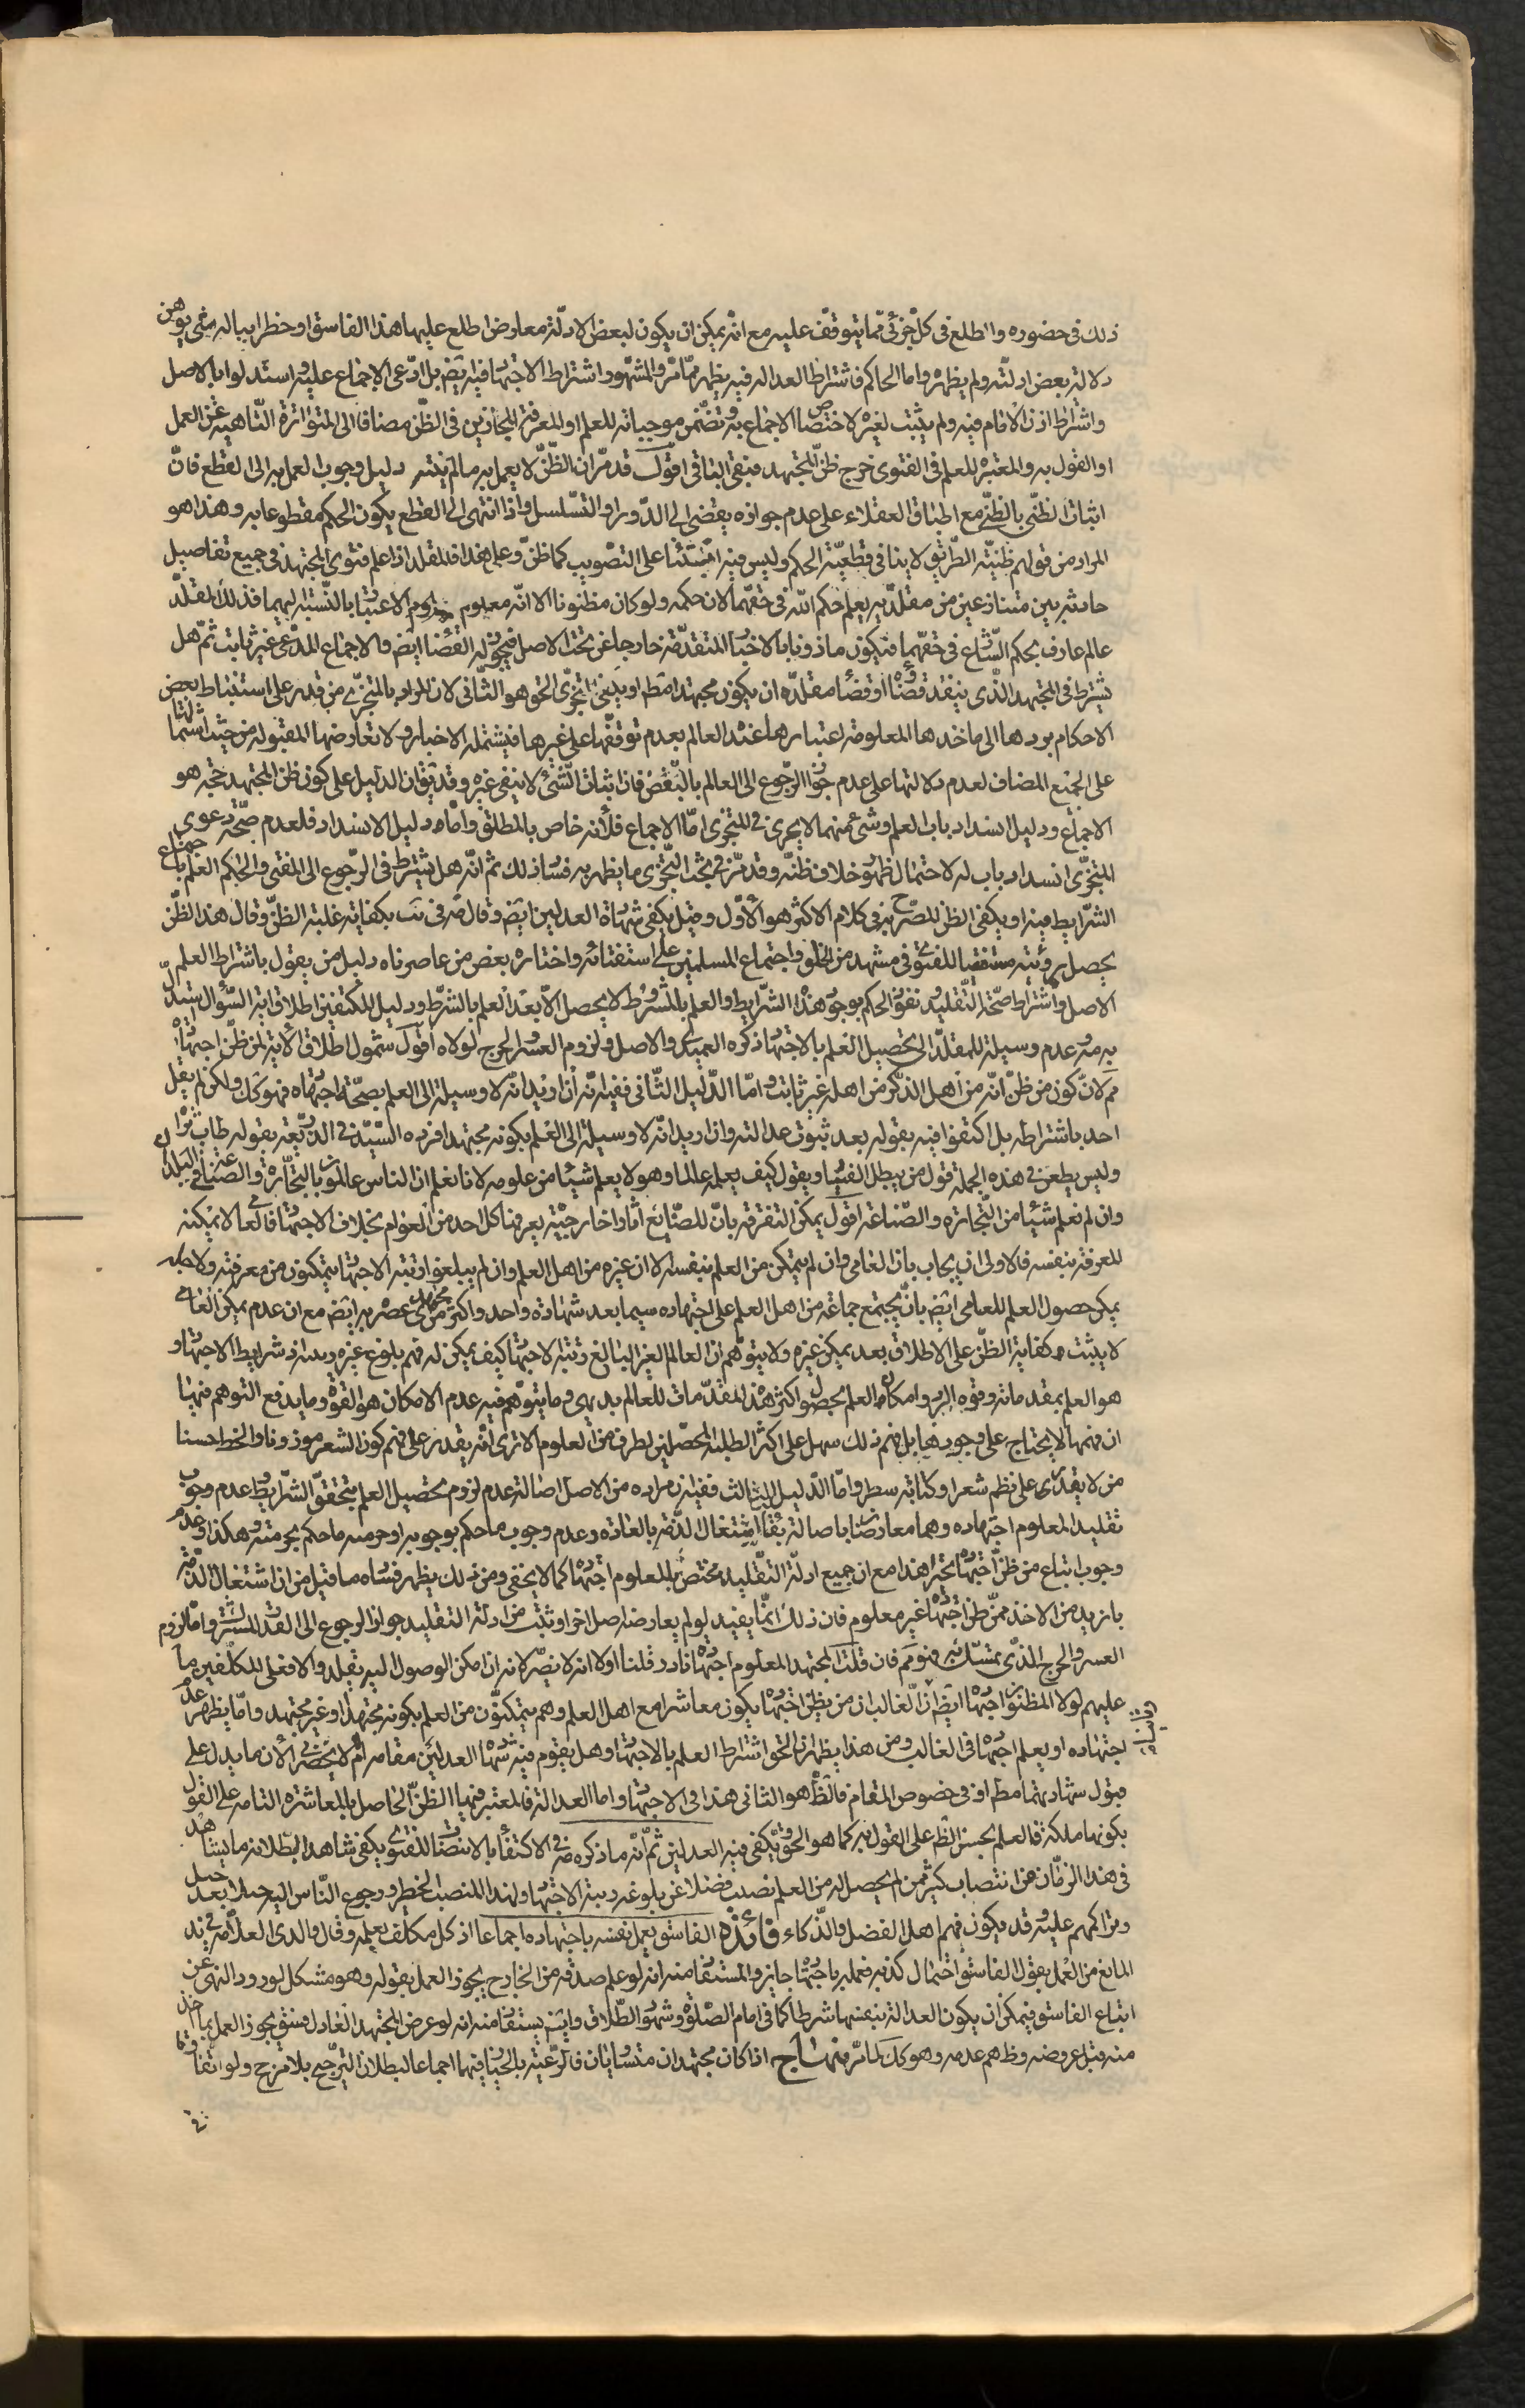 ذلك فى حضوره واطلع فى كل جزئى مما يتوقف عليه مع انه يمكن ان يكون لبعض الادلة معارض اطلع عليها هذا الفاسق او خطر بباله معنى يوهن
دلالة بعض ادلته ولم يظهره واما الحاكم فاشتراط العدالة فيه يظهر مما مر والمشهور اشتراط الاجتهاد فيه ايضا بل ادعى الاجماع عليه واستدلوا بالاصل
واشتراط اذن الامام فيه ولم يثبت لغيره لاختصاص الاجماع به وتضمن موجباته للعلم او المعرفة المجازين فى الظن مضافا الى المتواترة الناهية عن العمل
او القول به والمعتبرة للعلم فى الفتوى خرج ظن المجتهد فبقى الباقى اقول قد مر ان الظن لا يعمل به ما لم ينته دليل وجوب العمل به الى القطع فان
اثبات الظنى بالظنى مع اطباق العقلاء على عدم جوازه يفضى الى الدور او التسلسل واذا انتهى الى القطع يكون الحكم مقطوعا به وهذا هو
المراد من قولهم ظنية الطريق لا ينافى قطعية الحكم وليس فيه ابتناء على التصويب كما ظن وعلى هذا فالمقلد اذا علم فتوى المجتهد فى جميع تفاصيل
حادثة بين متنازعين من مقلديه يعلم حكم الله فى حقهما لان حكمه ولو كان مظنونا الا انه معلوم الاعتبار بالنسبة اليهما فذلك المقلد
عالم عارف بحكم الشارع فى حقهما فيكون ماذونا بالاخبار المتقدمة خارجا عن تحت الاصل فيجوز له القضاء ايضا والاجماع المدعى غير ثابت ثم هل
يشترط فى المجتهد الذى ينفذ قضاؤه او قضاء مقلده ان يكون مجتهدا مطلقا او يكفى التجزى الحق هو الثانى لان المراد بالمتجزى من قدر على استنباط بعض
الاحكام بردها الى ماخذها المعلومة اعتبارها عند العالم بعدم توقفها على غيرها فيشتمله الاخبار ولا تعارضها المقبولة من حيث اشتمالها
على الجمع المضاف لعدم دلالتها على عدم جواز الرجوع الى العالم بالبعض فان اثبات الشئ لا ينفى غيره وقد يقال ان الدليل على كون ظن المجتهد حجة هو
الاجماع ودليل انسداد باب العلم وشئ منهما لا يجرى فى المتجزى اما الاجماع فلانه خاص بالمطلق واما دليل الانسداد فلعدم صحة دعوى
المتجزى انسداد باب له لاحتمال ظهور خلاف ظنه وقد مر فى بحث التجزى ما يظهر به فساد ذلك ثم انه هل يشترط فى الرجوع الى المفتى والحاكم العلم باجتماع
الشرايط فيه او يكفى الظن المصرح به فى كلام الاكثر هو الاول وقيل يكفى شهادة العدلين ايضا وقال فى يب بكفاية غلبة الظن وقال هذا الظن
يحصل برؤيته منتصبا للفتوى فى مشهد من الخلق واجتماع المسلمين على استفتائه واختاره بعض من عاصرناه دليل من يقول باشتراط العلم
الاصل واشتراط صحة التقليد ونفوذ الحكم بوجود هذه الشرايط والعلم بالمشروط لا يحصل الا بعد العلم بالشرط ودليل المكتفين اطلاق اية السؤال استدل
به وعدم وسيلة للمقلد الى تحصيل العلم بالاجتهاد ذكره العميدى والاصل ولزوم العسر والحرج لولاه اقول شمول اطلاق الاية لمن ظن اجتهاده
مم لان كون من ظن انه من اهل الذكر من اهله غير ثابت واما الدليل الثانى ففيه انه ان اريد انه لا وسيلة الى العلم بصحة اجتهاده فهو كك ولكن لم يقل
احد باشتراطه بل اكتفوا فيه بقوله بعد ثبوت عدالته وان اريد انه لا وسيلة الى العلم بكونه مجتهدا فرده السيد فى الذريعة بقوله طاب ثراه
وليس يطعن فى هذه الجملة قول من يبطل الفتيا ويقول كيف يعلمه عالما وهو لا يعلم شيئا من علومه لانا نعلم ان الناس عالمون بالتجارة والصناعة فى البلد
وان لم نعلم شيئا من التجارة والصناعة اقول يمكن التفرقة بان للصنائع اثارا خارجية يعرفها كل احد من العوام بخلاف الاجتهاد فالعامى لا يمكنه
المعرفة بنفسه فالاولى ان يجاب بان العامى وان لم يتمكن من العلم بنفسه الا ان غيره من اهل العلم وان لم يبلغوا رتبة الاجتهاد يتمكنون من معرفته ولاجله
يمكن حصول العلم للعامى ايضا بان يجتمع جماعة من اهل العلم على اجتهاده سيما بعد شهادة واحد واكثر من مجتهدى عصره به ايضا مع ان عدم تمكن العامى
لا يثبت كفاية الظن على الاطلاق بعد تمكن غيره ولا يتوهم ان العالم الغير البالغ رتبة الاجتهاد كيف يمكن له فهم بلوغ غيره وذلك اذ شرايط الاجتهاد
هو العلم بمقدماته وقوة الرد وامكان العلم بحصول اكثر هذه المقدمات للعالم بديهى وما يتوهم فيه عدم الامكان هو القوة وما يدفع التوهم فيها
ان فهمها لا يحتاج على وجودها بل فهم ذلك سهل على اكثر الطلبة المحصلين لطرف من العلوم الا ترى انه يقدر على فهم كون الشعر موزونا والخط حسنا
من لا يقدر على نظم شعر او كتابة سطر واما الدليل الثالث ففيه ان مراده من الاصل اصالة عدم لزوم تحصيل العلم بتحقق الشرايط او عدم وجوب
تقليد المعلوم اجتهاده وهما معارضان باصالة بقاء اشتغال الذمة بالعادة وعدم وجوب ما حكم بوجوبه او حرمة ما حكم بحرمته وهكذا او عدم
وجوب اتباع من ظن اجتهاده تخييرا هذا مع ان جميع ادلة التقليد مختص بالمعلوم اجتهاده كما لا يخفى ومن ذلك يظهر فساد ما قيل من ان اشتغال الذمة
بازيد من الاخذ ممن ظن اجتهاده غير معلوم فان ذلك انما يفيد لو لم يعارضه اصل اخر او ثبت من ادلة التقليد جواز الرجوع الى القدر المشترك واما لزوم
العسر والحرج الذى تمسك به فهو مم فان قلت المجتهد المعلوم اجتهاده نادر قلنا اولا انه لا يضر لانه ان امكن الوصول اليه يقلد والا فعلى المكلفين ما
عليهم لولا المظنون اجتهاده ايضا اذ الغالب ان من يظن اجتهاده يكون معاشرا مع اهل العلم وهم يتمكنون من العلم بكونه مجتهدا او غير مجتهد واما يظهر عدم
اجتهاده او يعلم اجتهاده فى الغالب ومن هذا يظهر ان الحق اشتراط العلم بالاجتهاد وهل يقوم فيه شهادة العدلين مقامه ام لا يحضرنى الان ما يدل على
قبول شهادتهما مطلقا او فى خصوص المقام فالظ هو الثانى هذا فى الاجتهاد واما العدالة فالمعتبر فيها الظن الحاصل بالمعاشرة التامة على القول
بكونها ملكة فالعلم بحسن الظ على القول به كما هو الحق ويكفى فيه العدلين ثم انه ما ذكره فى الاكتفاء بالانتصاب للفتوى يكفى شاهدا لبطلانه ما يشاهد
فى هذا الزمان من انتصاب كثير ممن لم يحصل له من العلم نصيب فضلا عن بلوغه رتبة الاجتهاد لهذا المنصب الخطير ورجوع الناس اليه جيلا بعد جيل
وتراكمهم عليه وقد يكون فيهم اهل الفضل والذكاء فائدة الفاسق يعمل نفسه باجتهاده اجماعا اذ كل مكلف يعلمه وقال والدى العلامة فى ند
المانع من العمل بقول الفاسق احتمال كذبه فعمله باجتهاده جايز والمستفاد منه انه لو علم صدقه من الخارج يجوز العمل بقوله وهو مشكل لورود النهى عن
اتباع الفاسق فيمكن ان يكون العدالة بنفسها شرطا كما فى امام الصلوة وشهود الطلاق وايضا يستفاد منه انه لو عرض المجتهد العادل فسق يجوز العمل بما اخذ
منه قبل عروضه وظ هم عدمه وهو كك لما مر منهاج اذا كان مجتهدان متساويان فالرعية بالخيار فيهما اجماعا لبطلان الترجيح بلا مرجح ولو اتفاقا